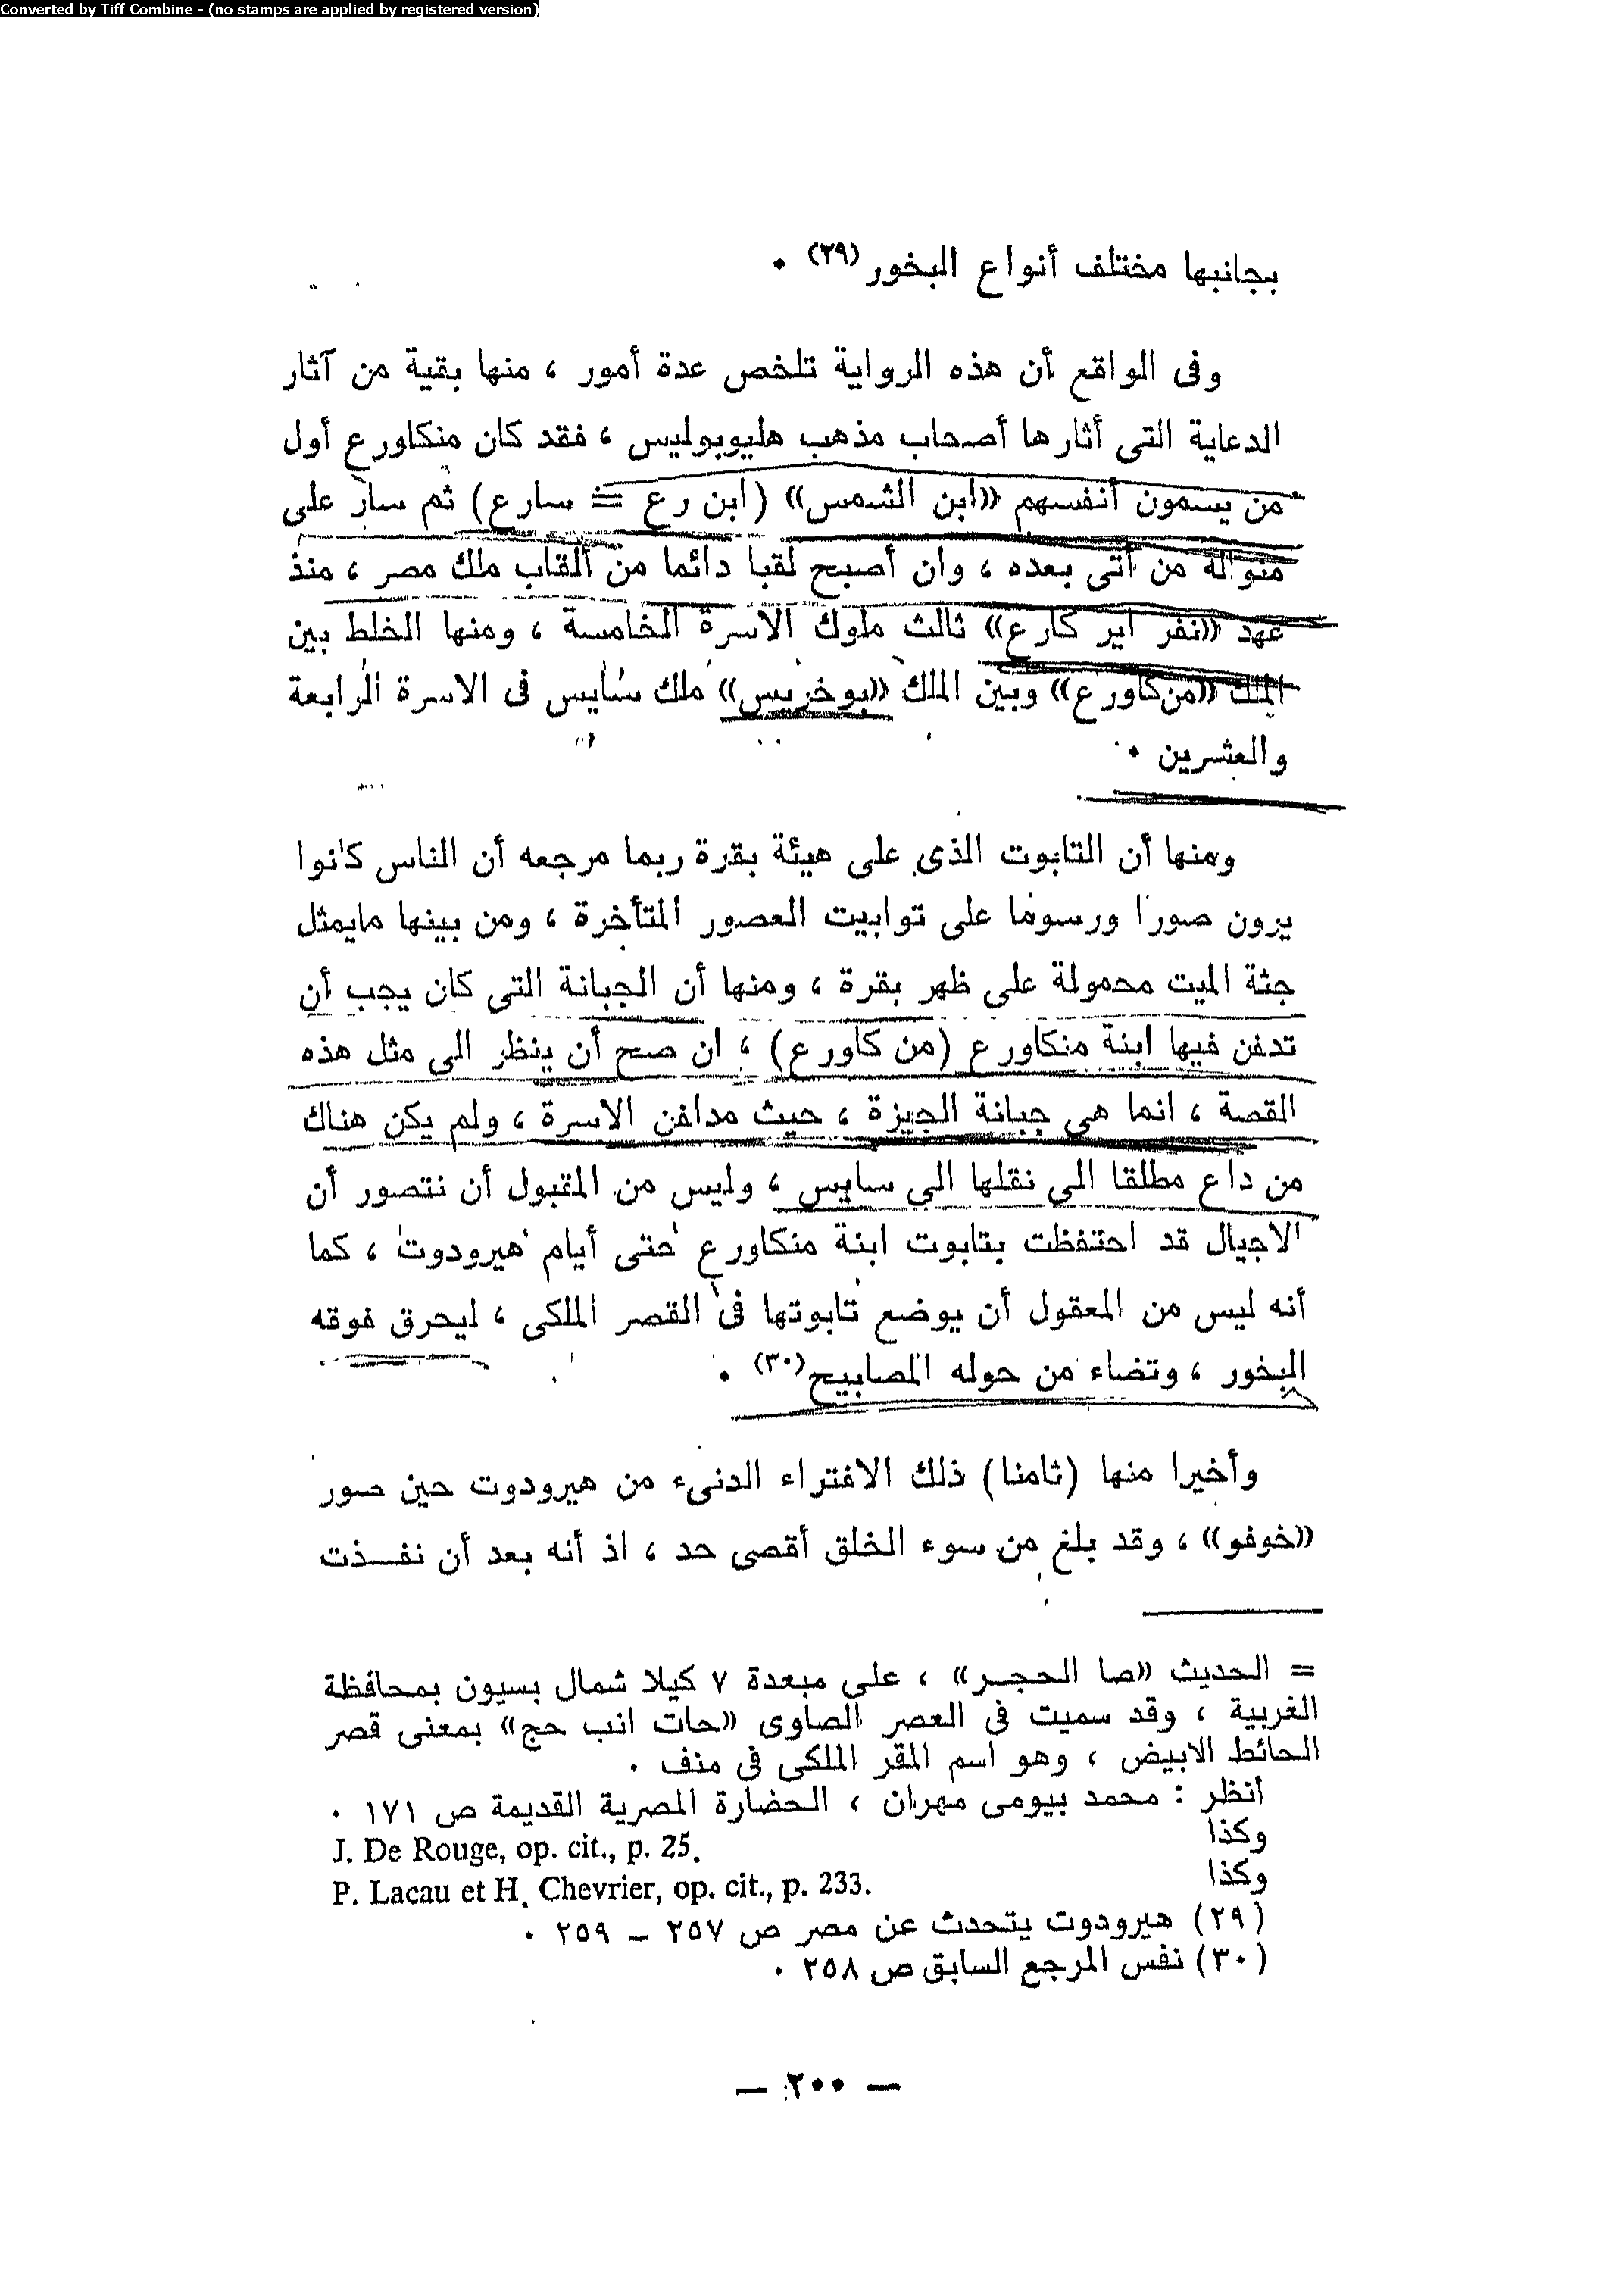 Converted by Tiff Combine - (no stamps are applied by registered version)
بجانبها مختلف أنواع البخور(٢٩) ٠
وفى الواقع أن هذه الرواية تلخص عدة أمور ، منها بقية من آثار
الدعاية التى أثارها أصحاب مذهب هليوبوليس ، فقد كان منكاورع أول
من يسمون أنفسهم «ابن الشمس» (ابن رع = سارع) ثم سار على
منواله من أتى بعده ، وان أصبح لقبا دائما من ألقاب ملك مصر ، منذ
عهد «نفر اير كارع» ثالث ملوك الاسرة الخامسة ، ومنها الخلط بين
الملك «من كاورع» وبين الملك «بوخريس» ملك سايس فى الاسرة الرابعة
والعشرين ٠
ومنها أن التابوت الذى على هيئة بقرة ربما مرجعه أن الناس كانوا
يرون صورا ورسوما على توابيت العصور المتأخرة ، ومن بينها مايمثل
جثة الميت محمولة على ظهر بقرة ، ومنها أن الجبانة التى كان يجب أن
تدفن فيها ابنة منكاورع (من كاورع) ، ان صح أن ينظر الى مثل هذه
القصة ، انما هى جبانة الجيزة ، حيث مدافن الاسرة ، ولم يكن هناك
من داع مطلقا الى نقلها الى سايس ، وليس من المقبول أن نتصور أن
الاجيال قد احتفظت بتابوت ابنة منكاورع حتى أيام هيرودوت ، كما
أنه ليس من المعقول أن يوضع تابوتها فى القصر الملكى ، ليحرق فوقه
البخور ، وتضاء من حوله المصابيح(٣٠) ٠
وأخيرا منها (ثامنا) ذلك الافتراء الدنىء من هيرودوت حين صور
«خوفو» ، وقد بلغ من سوء الخلق أقصى حد ، اذ أنه بعد أن نفـــذت
= الحديث «صا الحجـر» ، على مبعدة ٧ كيلا شمال بسيون بمحافظة
الغربية ، وقد سميت فى العصر الصاوى «حات انب حج» بمعنى قصر
الحائط الابيض ، وهو اسم المقر الملكى فى منف ٠
أنظر : محمد بيومى مهران ، الحضارة المصرية القديمة ص ١٧١ ٠
وكذا J. De Rouge, op. cit., p. 25.
وكذا P. Lacau et H. Chevrier, op. cit., p. 233.
(٢٩) هيرودوت يتحدث عن مصر ص ٢٥٧ – ٢٥٩ ٠
(٣٠) نفس المرجع السابق ص ٢٥٨ ٠
— ٢٠٠ —